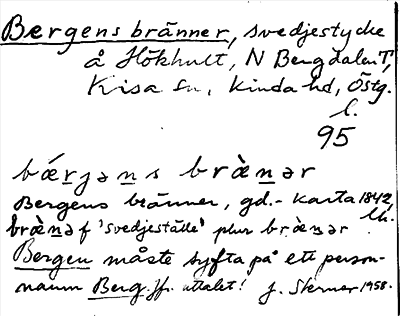 Bergens bränner, svedjestycke
å Hökhult, N Bergdalen T,
Kisa sn, Kinda hd, Östg.
l.
95
bǽrjəns brὰ̀nər
Bergens bränner, gd.- karta 1842,
brὰ̀nə f 'svedjeställe' plur brὰ̀nər lh.
Bergen måste syfta på ett person-
namn Berg. Jfr. uttalet! J. Skerner 1958.